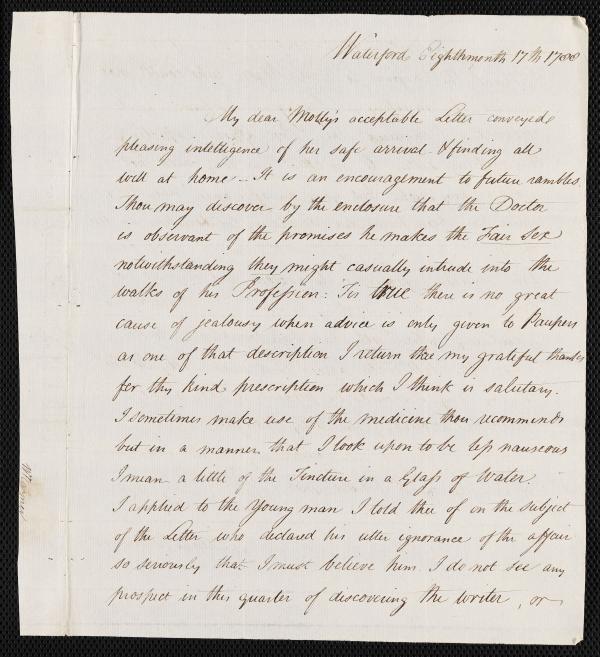 Waterford Eighthmonth 17th 1788
My dear Molly's acceptable Letter conveyed
pleasing intelligence of her safe arrival & finding all
well at home - It is an encouragement to future rambles
Thou may discover by the enclosure that the Doctor
is observant of the promises he makes the Fair Sex
notwithstanding they might casually intrude into the
walks of his Profession: Tis true there is no great
cause of jealousy when advice is only given to Paupers
as one of that description I return thee my grateful thanks
for thy kind prescription which I think is salutary.
I sometimes make use of the medicine thou recommends
but in a manner that I look upon to be less nauseous
I mean a little of the Tincture in a Glass of Water.
I applied to the young man I told thee of on the subject
of the Letter who declared his utter ignorance of the affair
so seriously that I must believe him. I do not see any
prospect in this quarter of discovering the writer, or